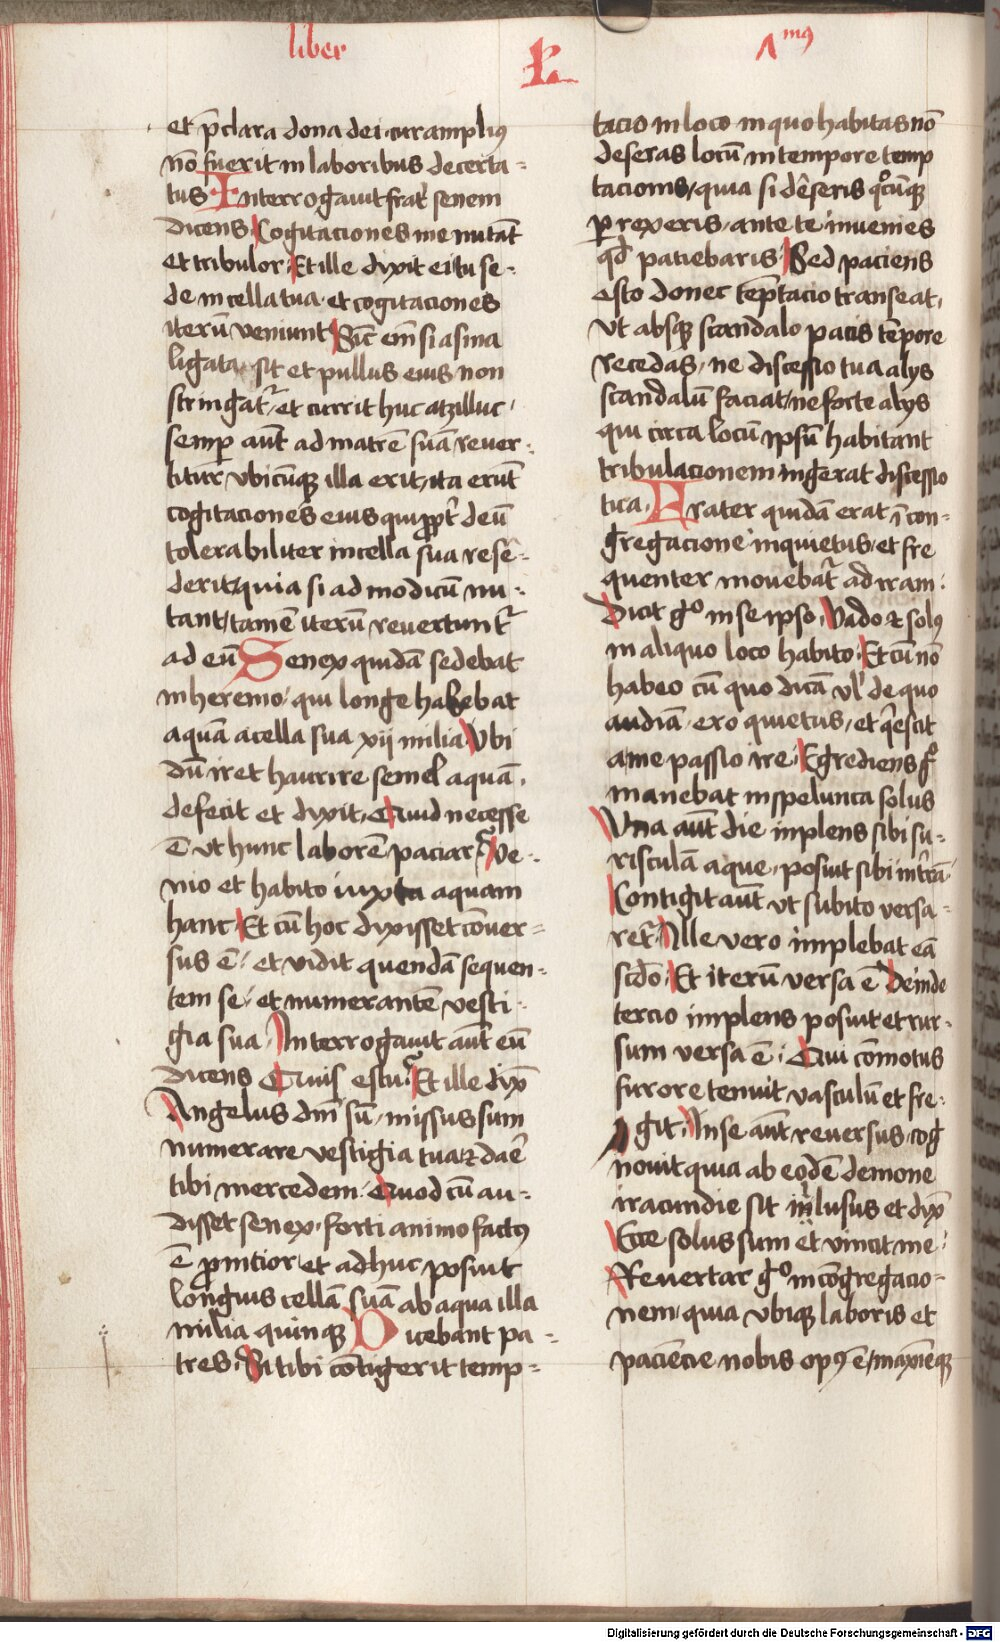 liber
L
Amꝰ
et p̄clara dona dei cur ampliꝰ
nō fuerit in laboribus decerta-
tus Interrogauit frat̉ senem
dicens Cogitaciones me nutāt
et tribulor Et ille dyxit ei tu se-
de in cella tua et cogitaciones
iterū veniunt Sic em̄ si asina
ligata sit et pullus eius non
stringat᷑ et currit huc atqꝫ illuc
semꝑ aūt ad matrē suā reuer-
titur vbicūqꝫ illa erit ita erūt
cogitaciones eius qui ꝓpt̉ deū
tolerabiliter in cella sua resē-
derit quia si ad modicū nu-
tant tamē iterū reuertunt᷑
ad eū Senex quidā sedebat
in heremo qui longe habebat
aquā a cella sua xij milia Vbi
dū iret haurire semel aquā
defecit et dyxit Quid necesse
ē vt hunc laborē paciar Ve-
nio et habito iuxta aquam
hanc Et cū hoc dyxisset cōuer-
sus ē et vidit quendā sequen-
tem se et numerantē vesti-
gia sua Interrogauit aūt eū
dicens Quis es tu Et ille dyx̄
Angelus dn̄i sū missus sum
numerare vestigia tua ⁊ daẽ
tibi mercedem Quod cū au-
disset senex forti animo factꝰ
ē ꝓmcior et adhuc posuit
longius cellā suā ab aqua illa
milia quinqꝫ Dicebant pa-
tres Si tibi cōtigerit temp-
tacio in loco in quo habitas nō
deseras locū in tempore temp
tacionis quia si deseris qͦcūqꝫ
ꝑrexeris ante te inuenies
qd̄ patiebaris Sed paciens
esto donec tēptacio transeat
vt absqꝫ scandalo pacis tēpore
recedas ne discessio tua alys
scandalū faciat ne forte alys
qui circa locū ipsū habitant
tribulacionem ingerat discessio
tua Frater quidā erat ī con-
gregacione inquietus et fre
quenter mouebat᷑ ad iram
Dicit gͦ in se ipso Vado ⁊ solꝰ
in aliquo loco habito Et cū nō
habeo cū quo dicā vl̓ de quo
audiā ero quietus et q̄escit
a me passio ire Egrediens gͦ
manebat in spelunca solus
Vna aūt die implens sibi su-
risculā aque posuit sibi in t̄rā
Contigit aūt vt subito versa-
ret᷑ Ille vero implebat eā
scdo Et iterū versa ē Deinde
tercio implens posuit et rur-
sum versa ē Qui cōmotus
furore tenuit vasculū et fre-
git In se aūt reuersus cog
nouit quia ab eodē demone
iracundie sit illusus et dyx̄
Ecce solus sum et vincit me
Reuertar gͦ in cōgregacio-
nem quia vbiqꝫ laboris et
paciencie nobis opꝰ ē maximeqꝫ
Digitalisierung gefördert durch die Deutsche Forschungsgemeinschaft - DFG